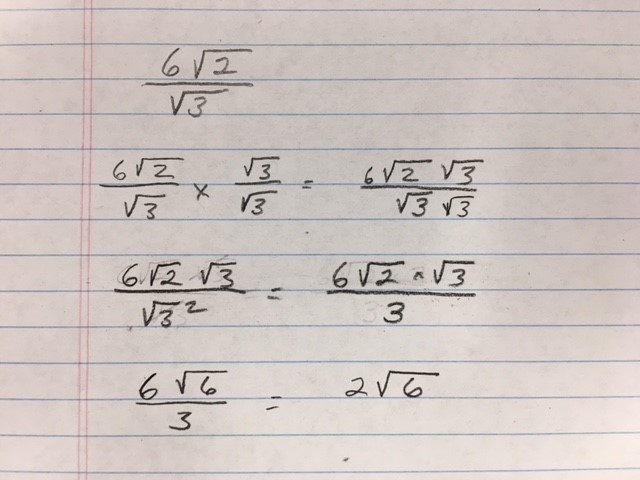 6√2
√3
6√2/√3 × √3/√3 = 6√2 √3/√3 √3
6√2 √3/√3² = 6√2 · √3/3
6√6/3 = 2√6